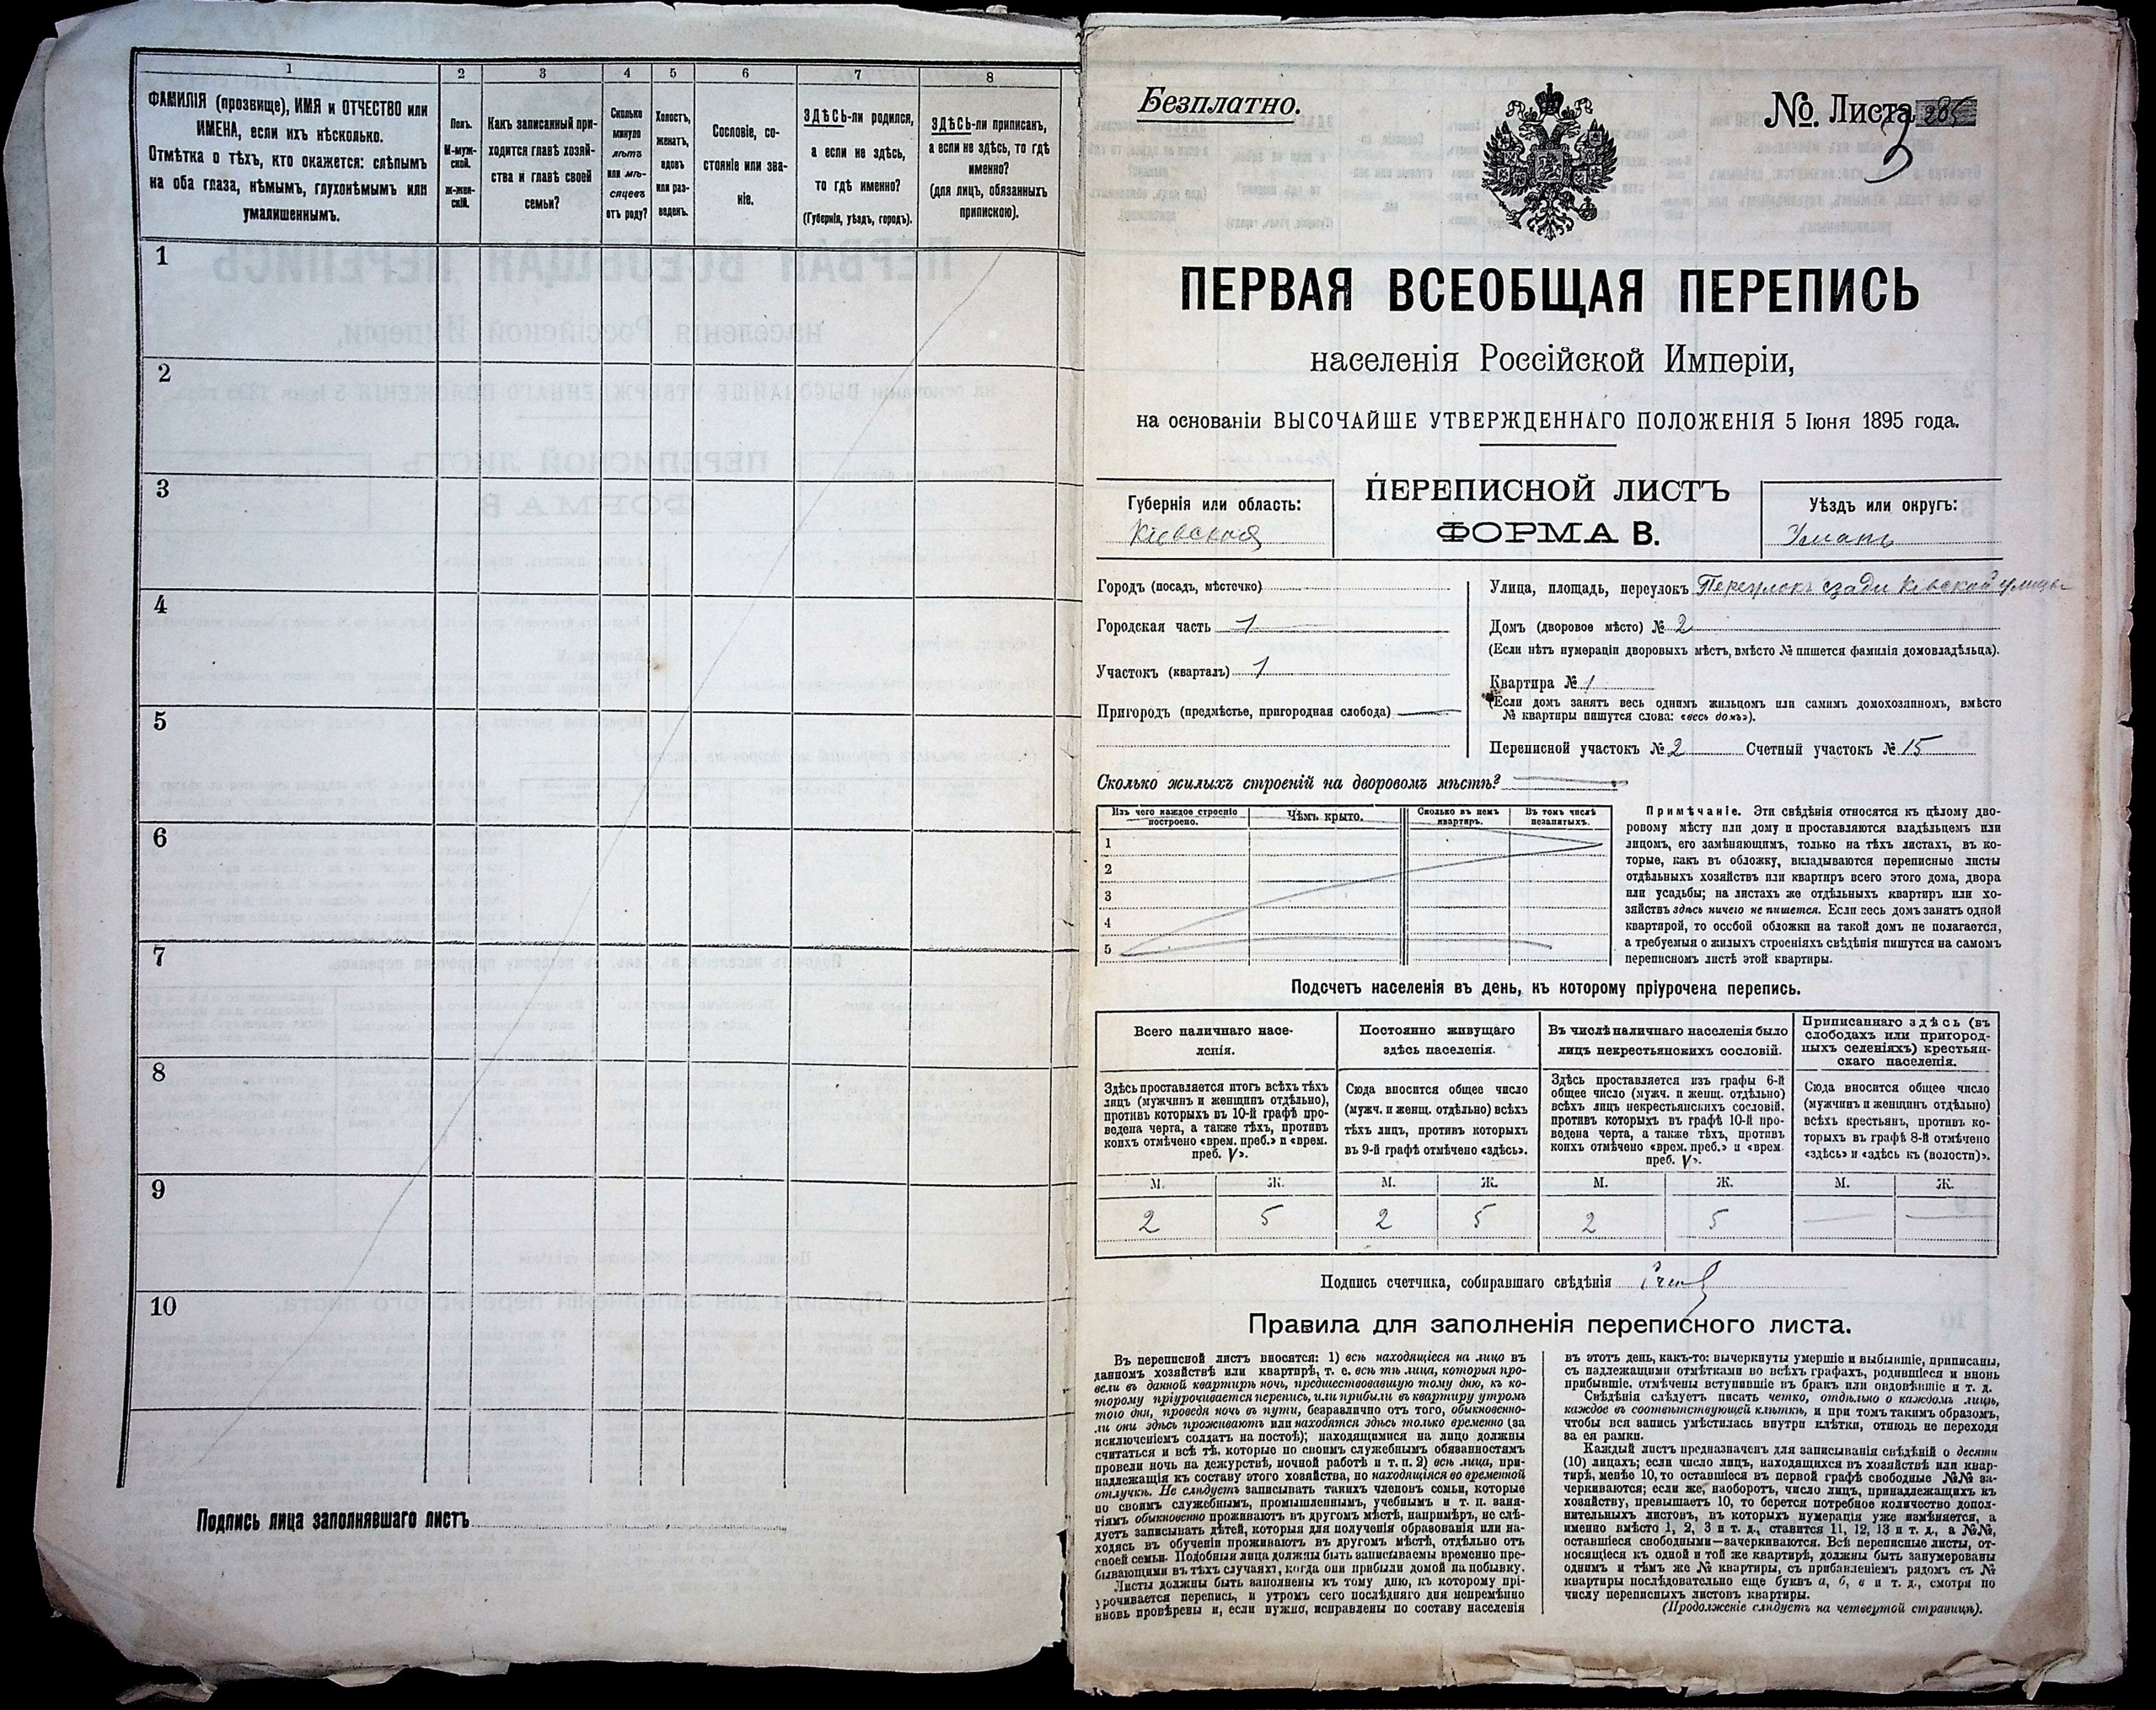 1 2 3 4 5 6 7 8
ФАМИЛІЯ (прозвище), ИМЯ и ОТЧЕСТВО или
ИМЕНА, если ихъ нѣсколько.
Отмѣтка о тѣхъ, кто окажется: слѣпымъ
на оба глаза, нѣмымъ, глухонѣмымъ или
умалишеннымъ.
Полъ.
М-муж-
ской.
Ж-жен-
скій.
Какъ записанный при-
ходится главѣ хозяй-
ства и главѣ своей
семьи?
Сколько
минуло
лѣтъ
или мѣ-
сяцевъ
отъ роду?
Холостъ,
женатъ,
вдовъ
или раз-
веденъ.
Сословіе, со-
стояніе или зва-
ніе.
ЗДѢСЬ-ли родился,
а если не здѣсь,
то гдѣ именно?
(Губернія, уѣздъ, городъ).
ЗДѢСЬ-ли приписанъ,
а если не здѣсь, то гдѣ
именно?
(для лицъ, обязанныхъ
припискою).
1
2
3
4
5
6
7
8
9
10
Подпись лица заполнявшаго листъ
Безплатно.
№. Листа 3
ПЕРВАЯ ВСЕОБЩАЯ ПЕРЕПИСЬ
населенія Россійской Имперіи,
на основаніи ВЫСОЧАЙШЕ УТВЕРЖДЕННАГО ПОЛОЖЕНІЯ 5 Іюня 1895 года.
Губернія или область:
Кіевская
ПЕРЕПИСНОЙ ЛИСТЪ
ФОРМА В.
Уѣздъ или округъ:
Умань
Городъ (посадъ, мѣстечко)
Городская часть 1
Участокъ (кварталъ) 1
Пригородъ (предмѣстье, пригородная слобода)
Улица, площадь, переулокъ Переулокъ сзади Кіевской улицы
Домъ (дворовое мѣсто) № 2
(Если нѣтъ нумераціи дворовыхъ мѣстъ, вмѣсто № пишется фамилія домовладѣльца).
Квартира № 1
(Если домъ занятъ весь однимъ жильцомъ или самимъ домохозяиномъ, вмѣсто
№ квартиры пишутся слова: «весь домъ»).
Переписной участокъ № 2 Счетный участокъ № 15
Сколько жилыхъ строеній на дворовомъ мѣстѣ?
Изъ чего каждое строеніе
построено.
Чѣмъ крыто.
Сколько въ немъ
квартиръ.
Въ томъ числѣ
незанятыхъ.
1
2
3
4
5
Примѣчаніе. Эти свѣдѣнія относятся къ цѣлому дво-
ровому мѣсту или дому и проставляются владѣльцемъ или
лицомъ, его замѣняющимъ, только на тѣхъ листахъ, въ ко-
торые, какъ въ обложку, вкладываются переписные листы
отдѣльныхъ хозяйствъ или квартиръ всего этого дома, двора
или усадьбы; на листахъ же отдѣльныхъ квартиръ или хо-
зяйствъ здѣсь ничего не пишется. Если весь домъ занятъ одной
квартирой, то особой обложки на такой домъ не полагается,
а требуемыя о жилыхъ строеніяхъ свѣдѣнія пишутся на самомъ
переписномъ листѣ этой квартиры.
Подсчетъ населенія въ день, къ которому пріурочена перепись.
Всего наличнаго насе-
ленія.
Здѣсь проставляется итогъ всѣхъ тѣхъ
лицъ (мужчинъ и женщинъ отдѣльно),
противъ которыхъ въ 10-й графѣ про-
ведена черта, а также тѣхъ, противъ
коихъ отмѣчено «врем. преб.» и «врем.
преб. V».
Постоянно живущаго
здѣсь населенія.
Сюда вносится общее число
(мужч. и женщ. отдѣльно) всѣхъ
тѣхъ лицъ, противъ которыхъ
въ 9-й графѣ отмѣчено «здѣсь».
Въ числѣ наличнаго населенія было
лицъ некрестьянскихъ сословій.
Здѣсь проставляется изъ графы 6-й
общее число (мужч. и женщ. отдѣльно)
всѣхъ лицъ некрестьянскихъ сословій,
противъ которыхъ въ графѣ 10-й про-
ведена черта, а также тѣхъ, противъ
коихъ отмѣчено «врем. преб.» и «врем.
преб. V».
Приписаннаго здѣсь (въ
слободахъ или пригород-
ныхъ селеніяхъ) крестьян-
скаго населенія.
Сюда вносится общее число
(мужчинъ и женщинъ отдѣльно)
всѣхъ крестьянъ, противъ ко-
торыхъ въ графѣ 8-й отмѣчено
«здѣсь» и «здѣсь къ (волости)».
М. Ж. М. Ж. М. Ж. М. Ж.
2 5 2 5 2 5
Подпись счетчика, собиравшаго свѣдѣнія
Правила для заполненія переписного листа.
Въ переписной листъ вносятся: 1) всѣ находящіеся на лицо въ
данномъ хозяйствѣ или квартирѣ, т. е. всѣ тѣ лица, которыя про-
вели въ данной квартирѣ ночь, предшествовавшую тому дню, къ ко-
торому пріурочивается перепись, или прибыли въ квартиру утромъ
того дня, проведя ночь въ пути, безразлично отъ того, обыкновенно-
ли они здѣсь проживаютъ или находятся здѣсь только временно (за
исключеніемъ солдатъ на постоѣ); находящимися на лицо должны
считаться и всѣ тѣ, которые по своимъ служебнымъ обязанностямъ
провели ночь на дежурствѣ, ночной работѣ и т. п. 2) всѣ лица, при-
надлежащія къ составу этого хозяйства, но находящіяся во временной
отлучкѣ. Не слѣдуетъ записывать такихъ членовъ семьи, которые
по своимъ служебнымъ, промышленнымъ, учебнымъ и т. п. заня-
тіямъ обыкновенно проживаютъ въ другомъ мѣстѣ, напримѣръ, не слѣ-
дуетъ записывать дѣтей, которыя для полученія образованія или на-
ходясь въ обученіи проживаютъ въ другомъ мѣстѣ, отдѣльно отъ
своей семьи. Подобныя лица должны быть записываемы временно пре-
бывающими въ тѣхъ случаяхъ, когда они прибыли домой на побывку.
Листы должны быть заполнены къ тому дню, къ которому прі-
урочивается перепись, и утромъ сего послѣдняго дня непремѣнно
вновь провѣрены и, если нужно, исправлены по составу населенія
въ этотъ день, какъ-то: вычеркнуты умершіе и выбывшіе, приписаны,
съ надлежащими отмѣтками во всѣхъ графахъ, родившіеся и вновь
прибывшіе, отмѣчены вступившіе въ бракъ или овдовѣвшіе и т. д.
Свѣдѣнія слѣдуетъ писать четко, отдѣльно о каждомъ лицѣ,
каждое въ соотвѣтствующей клѣткѣ, и при томъ такимъ образомъ,
чтобы вся запись умѣстилась внутри клѣтки, отнюдь не переходя
за ея рамки.
Каждый листъ предназначенъ для записыванія свѣдѣній о десяти
(10) лицахъ; если число лицъ, находящихся въ хозяйствѣ или квар-
тирѣ, менѣе 10, то оставшіеся въ первой графѣ свободные №№ за-
черкиваются; если же, наоборотъ, число лицъ, принадлежащихъ къ
хозяйству, превышаетъ 10, то берется потребное количество допол-
нительныхъ листовъ, въ которыхъ нумерація уже измѣняется, а
именно вмѣсто 1, 2, 3 и т. д., ставится 11, 12, 13 и т. д., а №№,
оставшіеся свободными—зачеркиваются. Всѣ переписные листы, от-
носящіеся къ одной и той же квартирѣ, должны быть занумерованы
однимъ и тѣмъ же № квартиры, съ прибавленіемъ рядомъ съ №
квартиры послѣдовательно еще буквъ а, б, в и т. д., смотря по
числу переписныхъ листовъ квартиры.
(Продолженіе слѣдуетъ на четвертой страницѣ).